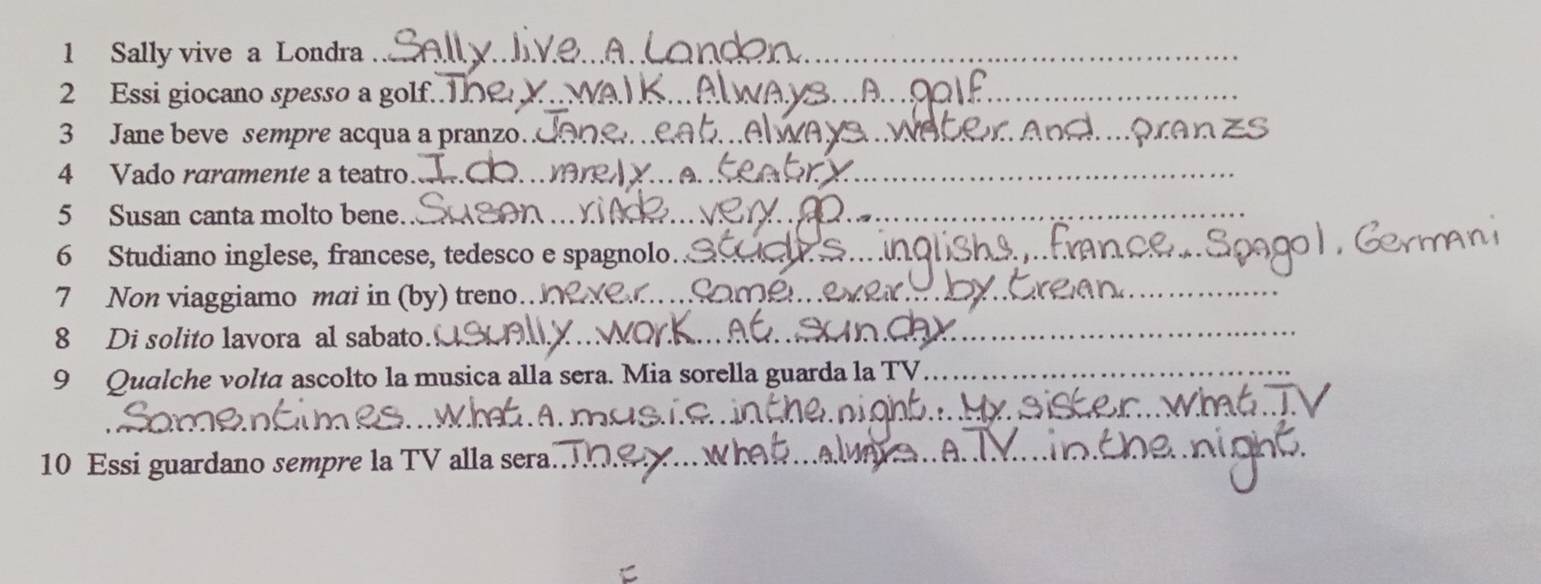 1 Sally vive a Londra ..SAlly live A London
2 Essi giocano spesso a golf..They WAlK AlwAys A golf
3 Jane beve sempre acqua a pranzo..JAne eAt AlwAys WAter And pranzs
4 Vado raramente a teatro..I do rArely A teAtry
5 Susan canta molto bene..SusAn riAde very go
6 Studiano inglese, francese, tedesco e spagnolo..studys inglishs, frAnce, Spagol, Germani
7 Non viaggiamo mai in (by) treno..never come ever by treian
8 Di solito lavora al sabato.usuAlly work At sunday
9 Qualche volta ascolto la musica alla sera. Mia sorella guarda la TV
Somentimes whAt A music in the night. My sister whAt TV
10 Essi guardano sempre la TV alla sera..They whAt always A TV in the night.